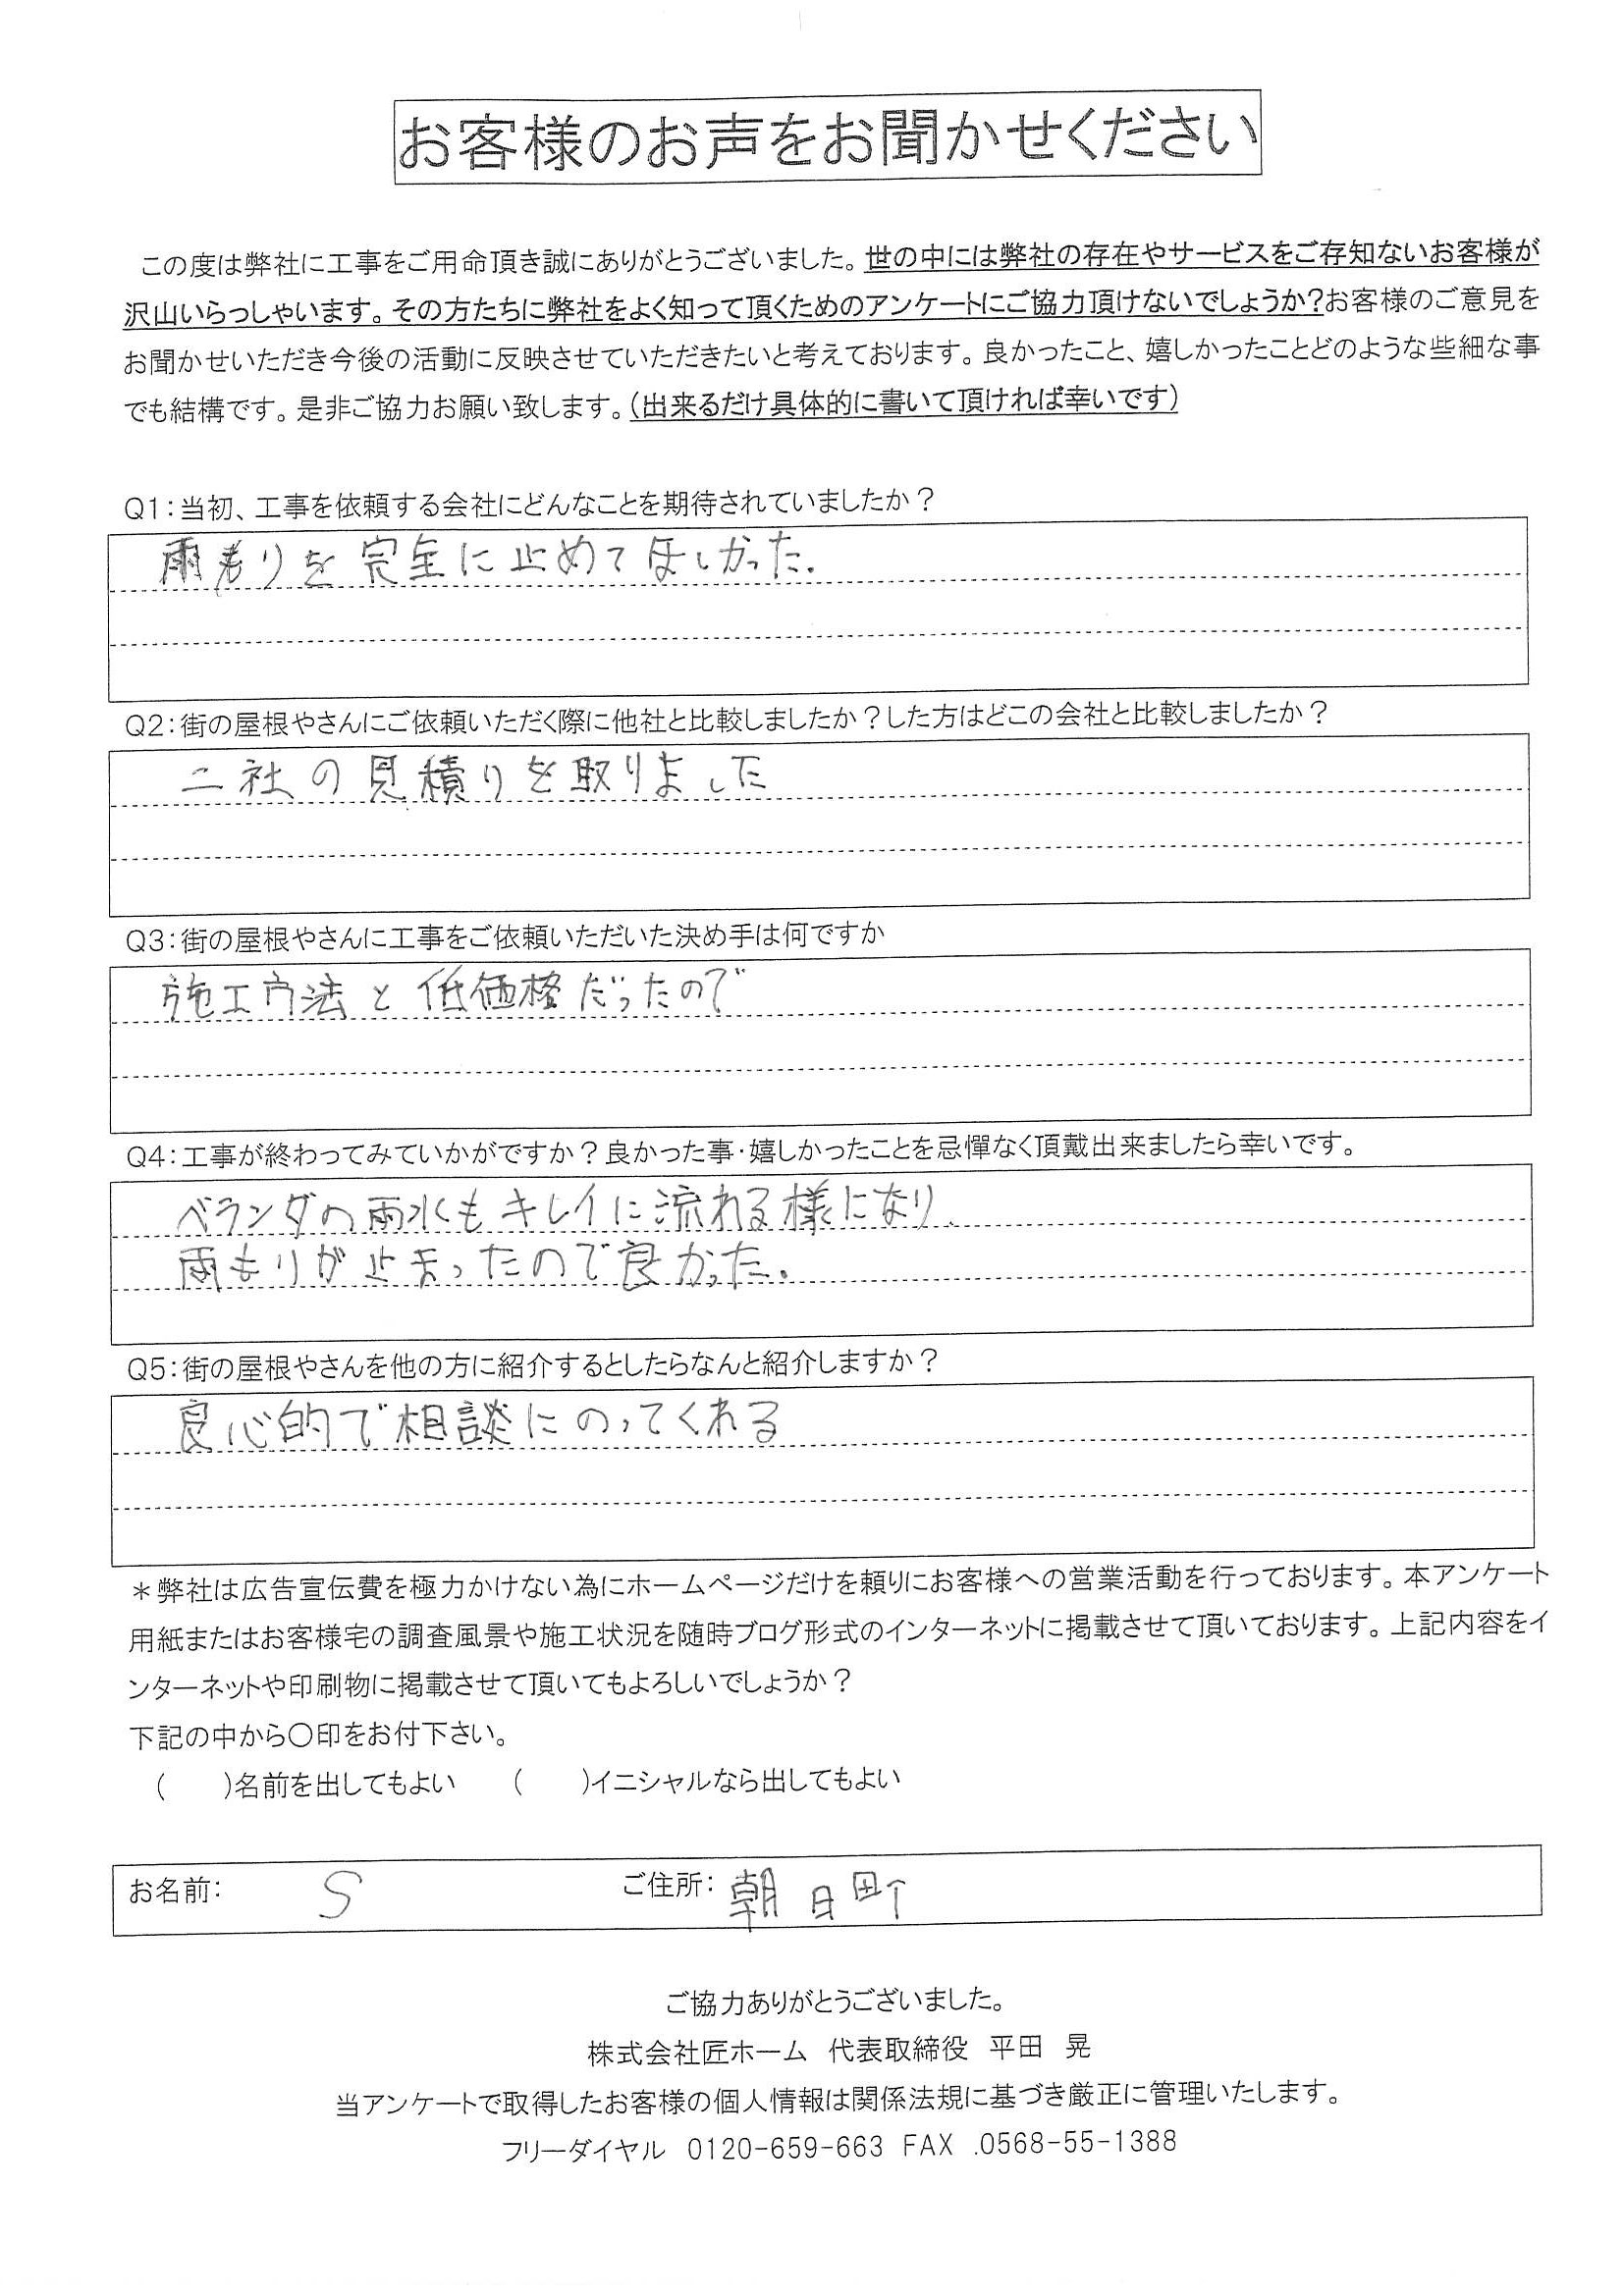 お客様のお声をお聞かせください
この度は弊社に工事をご用命頂き誠にありがとうございました。世の中には弊社の存在やサービスをご存知ないお客様が
沢山いらっしゃいます。その方たちに弊社をよく知って頂くためのアンケートにご協力頂けないでしょうか?お客様のご意見を
お聞かせいただき今後の活動に反映させていただきたいと考えております。良かったこと、嬉しかったことどのような些細な事
でも結構です。是非ご協力お願い致します。(出来るだけ具体的に書いて頂ければ幸いです)
Q1:当初、工事を依頼する会社にどんなことを期待されていましたか?
雨もりを完全に止めてほしかった.
Q2:街の屋根やさんにご依頼いただく際に他社と比較しましたか?した方はどこの会社と比較しましたか?
二社の見積りを取りました
Q3:街の屋根やさんに工事をご依頼いただいた決め手は何ですか
施工方法と低価格だったので
Q4:工事が終わってみていかがですか?良かった事・嬉しかったことを忌憚なく頂戴出来ましたら幸いです。
ベランダの雨水もキレイに流れる様になり、
雨もりが止まったので良かった.
Q5:街の屋根やさんを他の方に紹介するとしたらなんと紹介しますか?
良心的で相談にのってくれる
*弊社は広告宣伝費を極力かけない為にホームページだけを頼りにお客様への営業活動を行っております。本アンケート
用紙またはお客様宅の調査風景や施工状況を随時ブログ形式のインターネットに掲載させて頂いております。上記内容をイ
ンターネットや印刷物に掲載させて頂いてもよろしいでしょうか?
下記の中から〇印をお付下さい。
(　　)名前を出してもよい　　(　　)イニシャルなら出してもよい
お名前: S　ご住所: 朝日町
ご協力ありがとうございました。
株式会社匠ホーム 代表取締役 平田 晃
当アンケートで取得したお客様の個人情報は関係法規に基づき厳正に管理いたします。
フリーダイヤル 0120-659-663 FAX .0568-55-1388